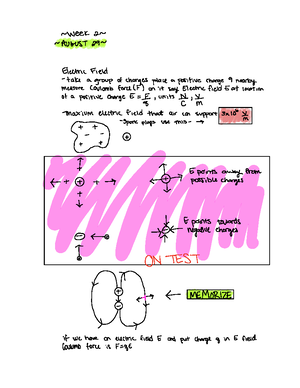 ~WEEK 2~
~AUGUST 29~
Electric Field
- take a group of charges place a positive charge q nearby
measure Coulomb force (F) on it say Electric field E at location
of a positive charge E = F/q, units N/C, V/m
- Maxium electric field that air can support 3x10⁶ V/m
- Spark plugs use this - →
E points away from
possible charges
E points towards
negative charges
ON TEST
MEMORIZE
if we have an electric field E and put charge q in E field
Coulomb force is F=qE